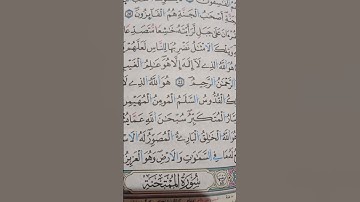 أَصْحَٰبُ الْجَنَّةِ هُمُ الْفَآئِزُونَ
عَلَىٰ جَبَلٍ لَّرَأَيْتَهُۥ خَٰشِعًا
وَتِلْكَ الْأَمْثَٰلُ نَضْرِبُهَا لِلنَّاسِ لَعَلَّهُمْ
هُوَ اللَّهُ الَّذِي لَآ إِلَٰهَ إِلَّا هُوَ عَٰلِمُ
الرَّحْمَٰنُ الرَّحِيمُ ٢٢ هُوَ اللَّهُ الَّذِي
الْقُدُّوسُ السَّلَٰمُ الْمُؤْمِنُ الْمُهَيْمِنُ
الْمُتَكَبِّرُ سُبْحَٰنَ اللَّهِ عَمَّا
اللَّهُ الْخَٰلِقُ الْبَارِئُ الْمُصَوِّرُ لَهُ
فِي السَّمَٰوَٰتِ وَالْأَرْضِ وَهُوَ الْعَزِيزُ
سُورَةُ الْمُمْتَحَنَةِ